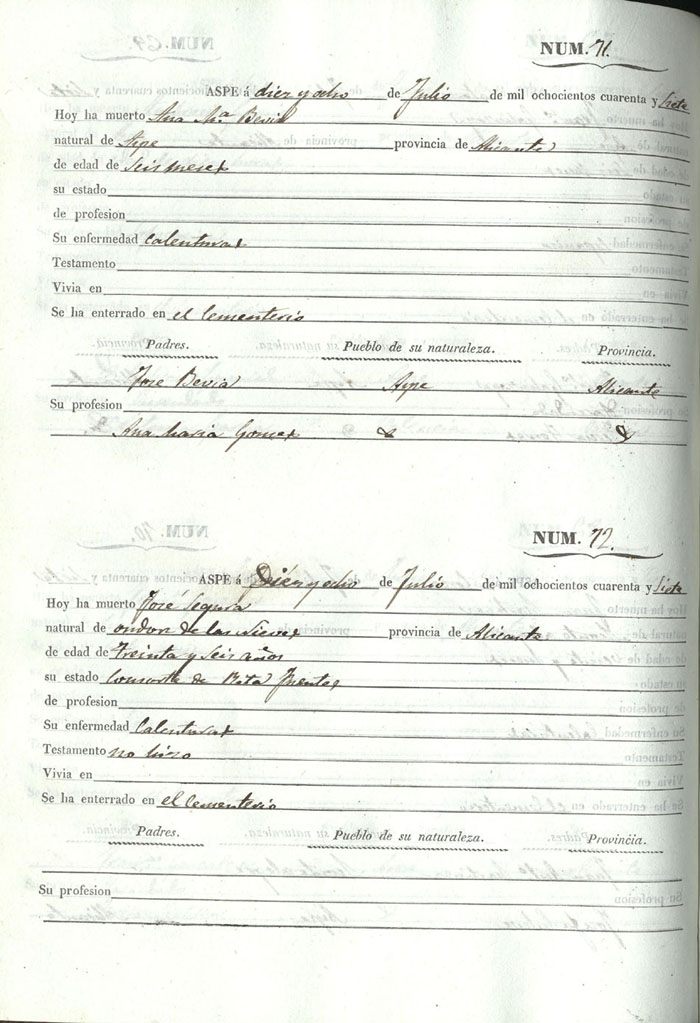 NUM. 71.
ASPE á diez y ocho de Julio de mil ochocientos cuarenta y siete
Hoy ha muerto Ana Mª Bevia
natural de Aspe provincia de Alicante
de edad de seis meses
su estado
de profesion
Su enfermedad Calenturas
Testamento
Vivia en
Se ha enterrado en el Cementerio
Padres. Pueblo de su naturaleza. Provincia.
Jose Bevia Aspe Alicante
Su profesion
Ana Maria Gomez
NUM. 72.
ASPE á Diez y ocho de Julio de mil ochocientos cuarenta y siete
Hoy ha muerto José Segura
natural de ondon de las Nieves provincia de Alicante
de edad de treinta y seis años
su estado Consorte de Rita Fuentes
de profesion
Su enfermedad Calenturas
Testamento no hizo
Vivia en
Se ha enterrado en el Cementerio
Padres. Pueblo de su naturaleza. Provincia.
Su profesion